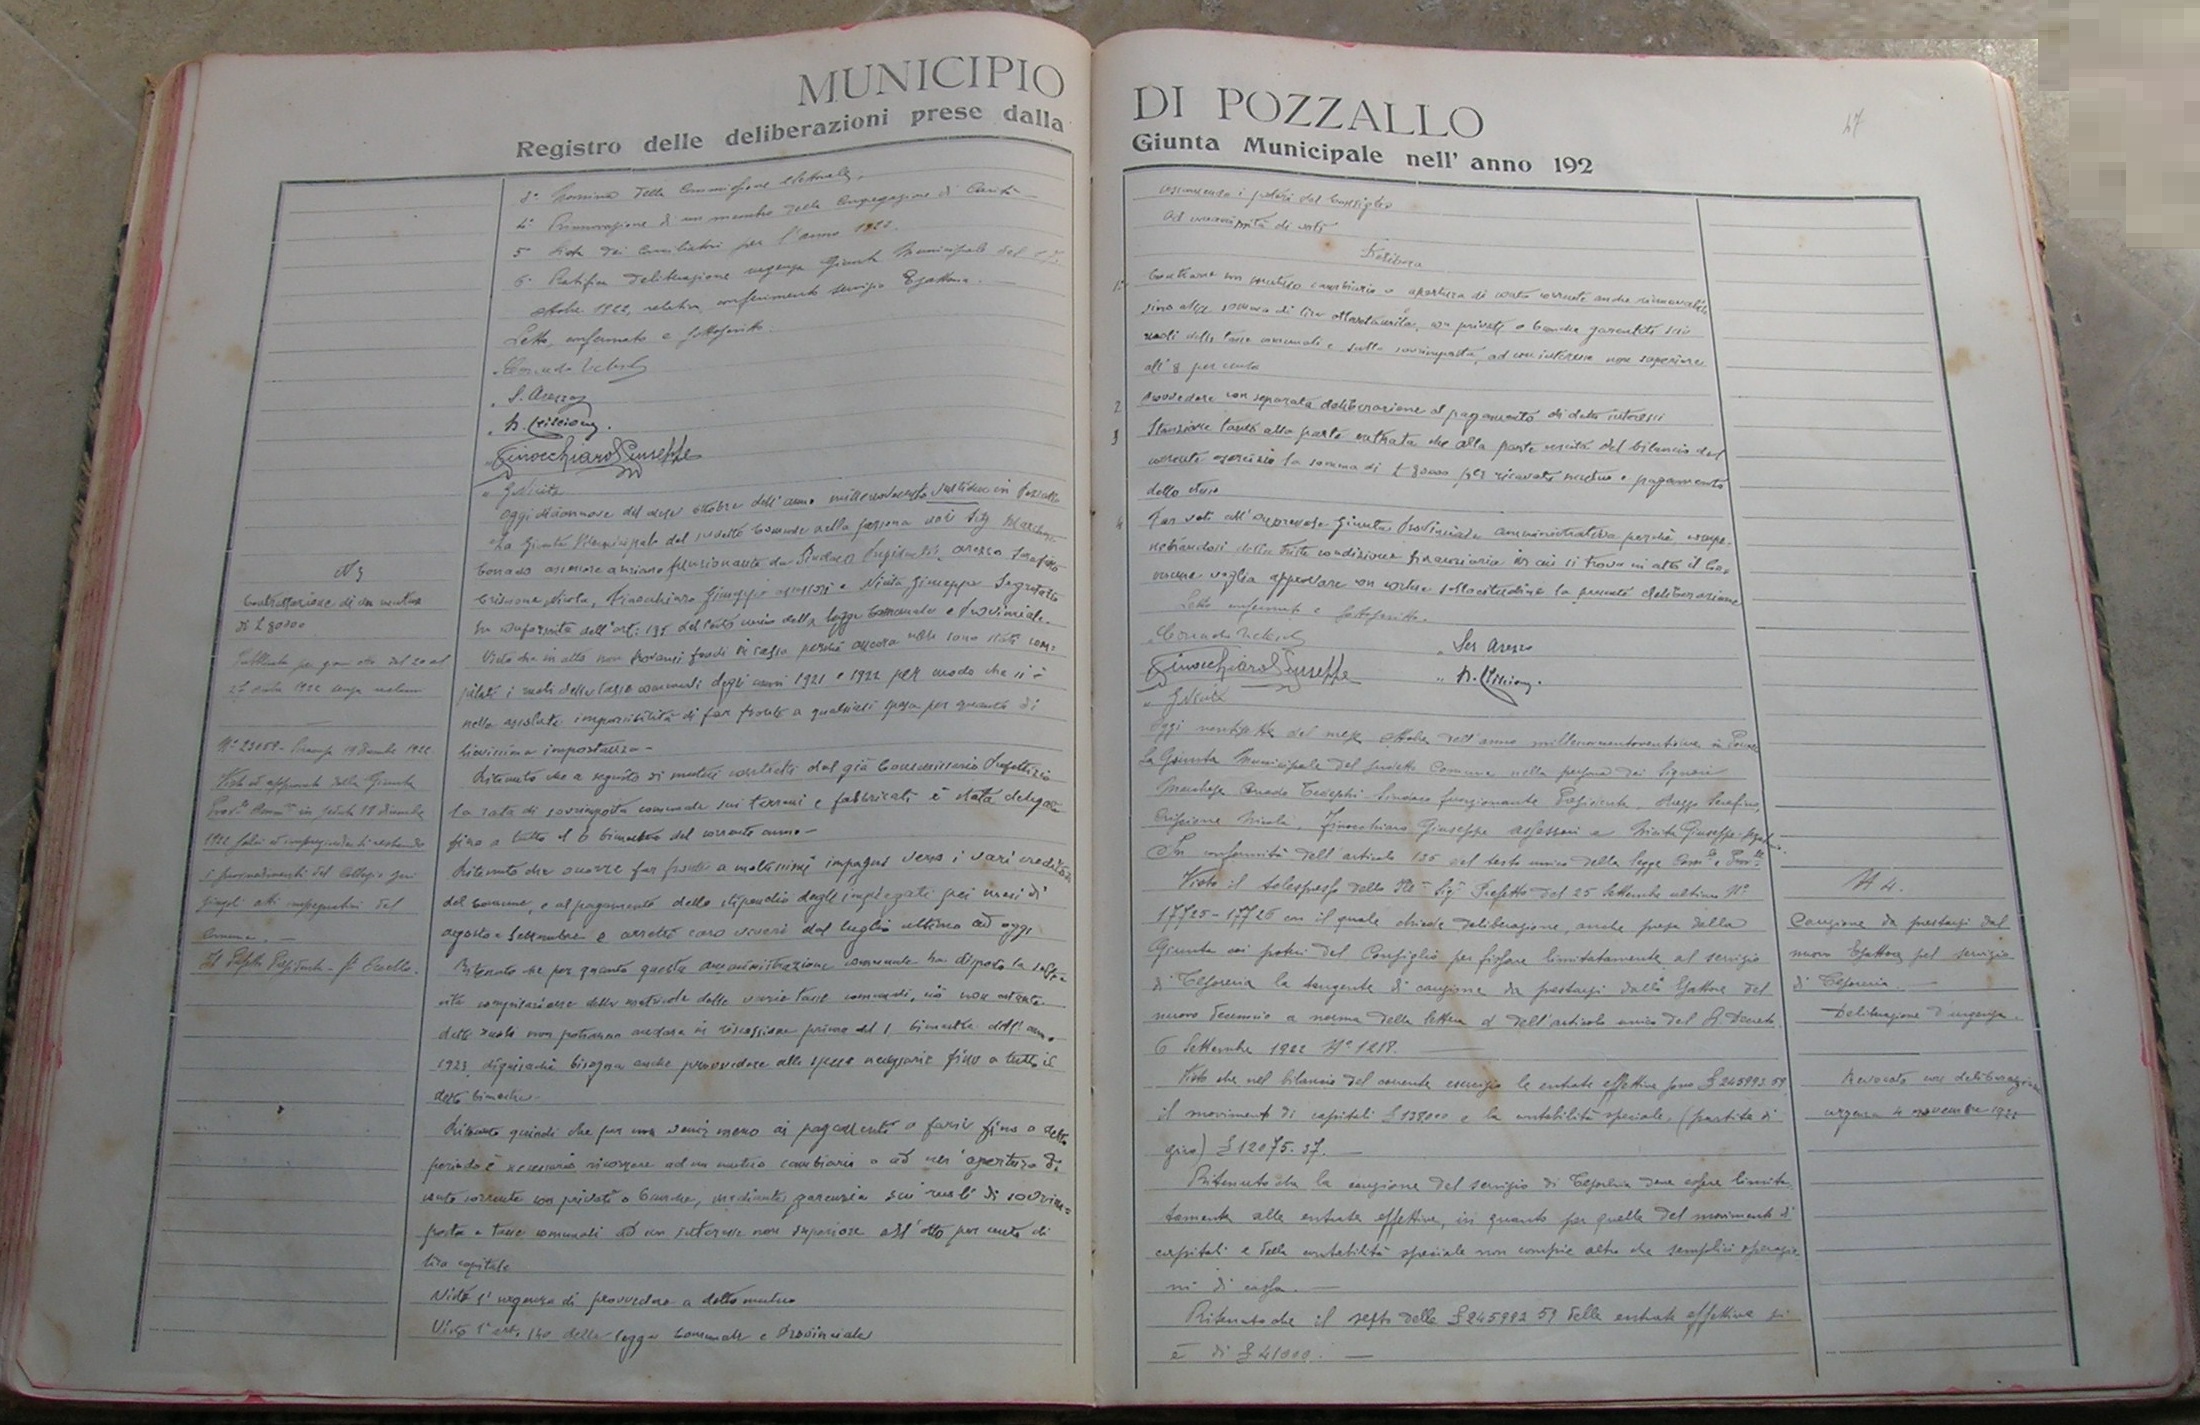 MUNICIPIO
Registro delle deliberazioni prese dalla
3° Nomina della Commissione elettorale,
4° Rinnovazione di un membro della Congregazione di Carità
5° Lista dei Conciliatori per l'anno 1923.
6° Ratifica deliberazione urgenza Giunta Municipale del
ottobre 1922, relativa conferimento servizio Esattoria.
Letto, confermato e sottoscritto.
S. Arezzo
N. Criscione.
Finocchiaro Giuseppe
G Nicita
Oggi diciannove del mese ottobre dell'anno millenovecentoventidue in Pozzallo
La Giunta Municipale del suddetto Comune nella persona
Corrado assessore anziano funzionante da Sindaco Presidente, Arezzo Serafino
Criscione Nicola, Finocchiaro Giuseppe assessori e Nicita Giuseppe Segretario
In conformità dell'art: 135 del testo unico della legge Comunale e Provinciale.
Visto che in atto non trovansi fondi in cassa perchè ancora non sono stati com-
pilati i ruoli delle tasse comunali degli anni 1921 e 1922 per modo che si è
nella assoluta impossibilità di far fronte a qualsiasi spesa per quanto di
lievissima importanza -
Ritenuto che a seguito di mutui contratti dal già Commissario Prefettizio
la rata di sovrimposta comunale sui terreni e fabbricati è stata delegata
fino a tutto il 6 bimestre del corrente anno -
Ritenuto che occorre far fronte a moltissimi impegni verso i vari creditori
del Comune, e al pagamento dello stipendio degli impiegati pei mesi di
agosto e Settembre e arretri caro viveri dal luglio ultimo ad oggi
Ritenuto che per quanto questa amministrazione comunale ha disposto la
compilazione delle matricole delle varie tasse comunali, ciò non ostante
detti ruoli non potranno andare in riscossione prima del 1 bimestre dell'anno
1923, digiacchè bisogna anche provvedere alle spese necessarie fino a tutto il
detto bimestre.
Ritenuto quindi che per non venir meno ai pagamenti a farsi fino a detto
periodo è necessario ricorrere ad un mutuo cambiario o ad un'apertura di
conto corrente con privati o banche, mediante garenzia sui ruoli di sovrim-
posta e tasse comunali ad un interesse non superiore all'otto per cento di
capitale
Vista l'urgenza di provvedere a detto mutuo
Visto l'art. 140 della legge Comunale e Provinciale
N 3
Contrattazione di un mutuo
di £ 80000
Pubblicata per giorni otto dal 20 al
27 ottobre 1922 senza reclami
N° 23059 - Siracusa 19 dicembre 1922
Visto ed approvato dalla Giunta
Prov.le Amm.va in seduta 18 dicembre
1922
i provvedimenti del Collegio sui
singoli atti impegnativi del
Comune. -
Il Prefetto Presidente - f°
DI POZZALLO
Giunta Municipale nell'anno 192
47
assumendo i poteri del Consiglio
Ad unanimità di voti
Delibera
1° Contrarre un mutuo cambiario o apertura di conto corrente anche rinnovabile
sino alla somma di lire ottantamila, con privati o banche garentito sui
ruoli delle tasse comunali e sulla sovrimposta, ad un interesse non superiore
all'8 per cento
2 Provvedere con separata deliberazione al pagamento di detti interessi
3 Stanziare tanto alla parte entrata che alla parte uscita del bilancio del
corrente esercizio la somma di £ 80000 per ricavato mutuo e pagamento
dello stesso
4 Far voti all'onorevole Giunta Provinciale amministrativa perchè compe-
netrandosi delle tristi condizioni finanziarie in cui si trova in atto il Co-
mune voglia approvare con cortese sollecitudine la presente deliberazione
Letto confermato e sottoscritto.
Ser Arezzo
Finocchiaro Giuseppe
N. Criscione.
G Nicita
Oggi ventisette del mese ottobre dell'anno millenovecentoventidue in Pozzallo
La Giunta Municipale del suddetto Comune nella persona dei Signori
Corrado Tedeschi Sindaco funzionante Presidente, Arezzo Serafino,
Criscione Nicola, Finocchiaro Giuseppe assessori e Nicita Giuseppe
In conformità dell'articolo 135 del testo unico della legge Com.le e Prov.le
Visto il telespresso dello Ill.mo Sig.r Prefetto del 25 Settembre ultimo N°
17725-17726 con il quale chiede deliberazione, anche presa dalla
Giunta coi poteri del Consiglio per fissare limitatamente al servizio
di Tesoreria la tangente di cauzione da prestarsi dallo Esattore del
nuovo decennio a norma della lettera d dell'articolo unico del R Decreto
6 Settembre 1922 N° 1218.
Visto che nel bilancio del corrente esercizio le entrate effettive sono £ 245992.59
il movimento di capitali £ 138000 e la contabilità speciale (partite di
giro) £ 12075.37.
Ritenuto che la cauzione del servizio di Tesoreria deve essere limita-
tamente alle entrate effettive, in quanto per quelle del movimento di
capitali e della contabilità speciale non compie altro che semplici operazio
ni di cassa.
Ritenuto che il sesto delle £ 245992 59 delle entrate effettive si
è di £ 41000.
N 4.
Cauzione da prestarsi dal
nuovo Esattore pel servizio
di Tesoreria.
Deliberazione d'urgenza.
Revocata con deliberazione
urgenza 4 novembre 1922